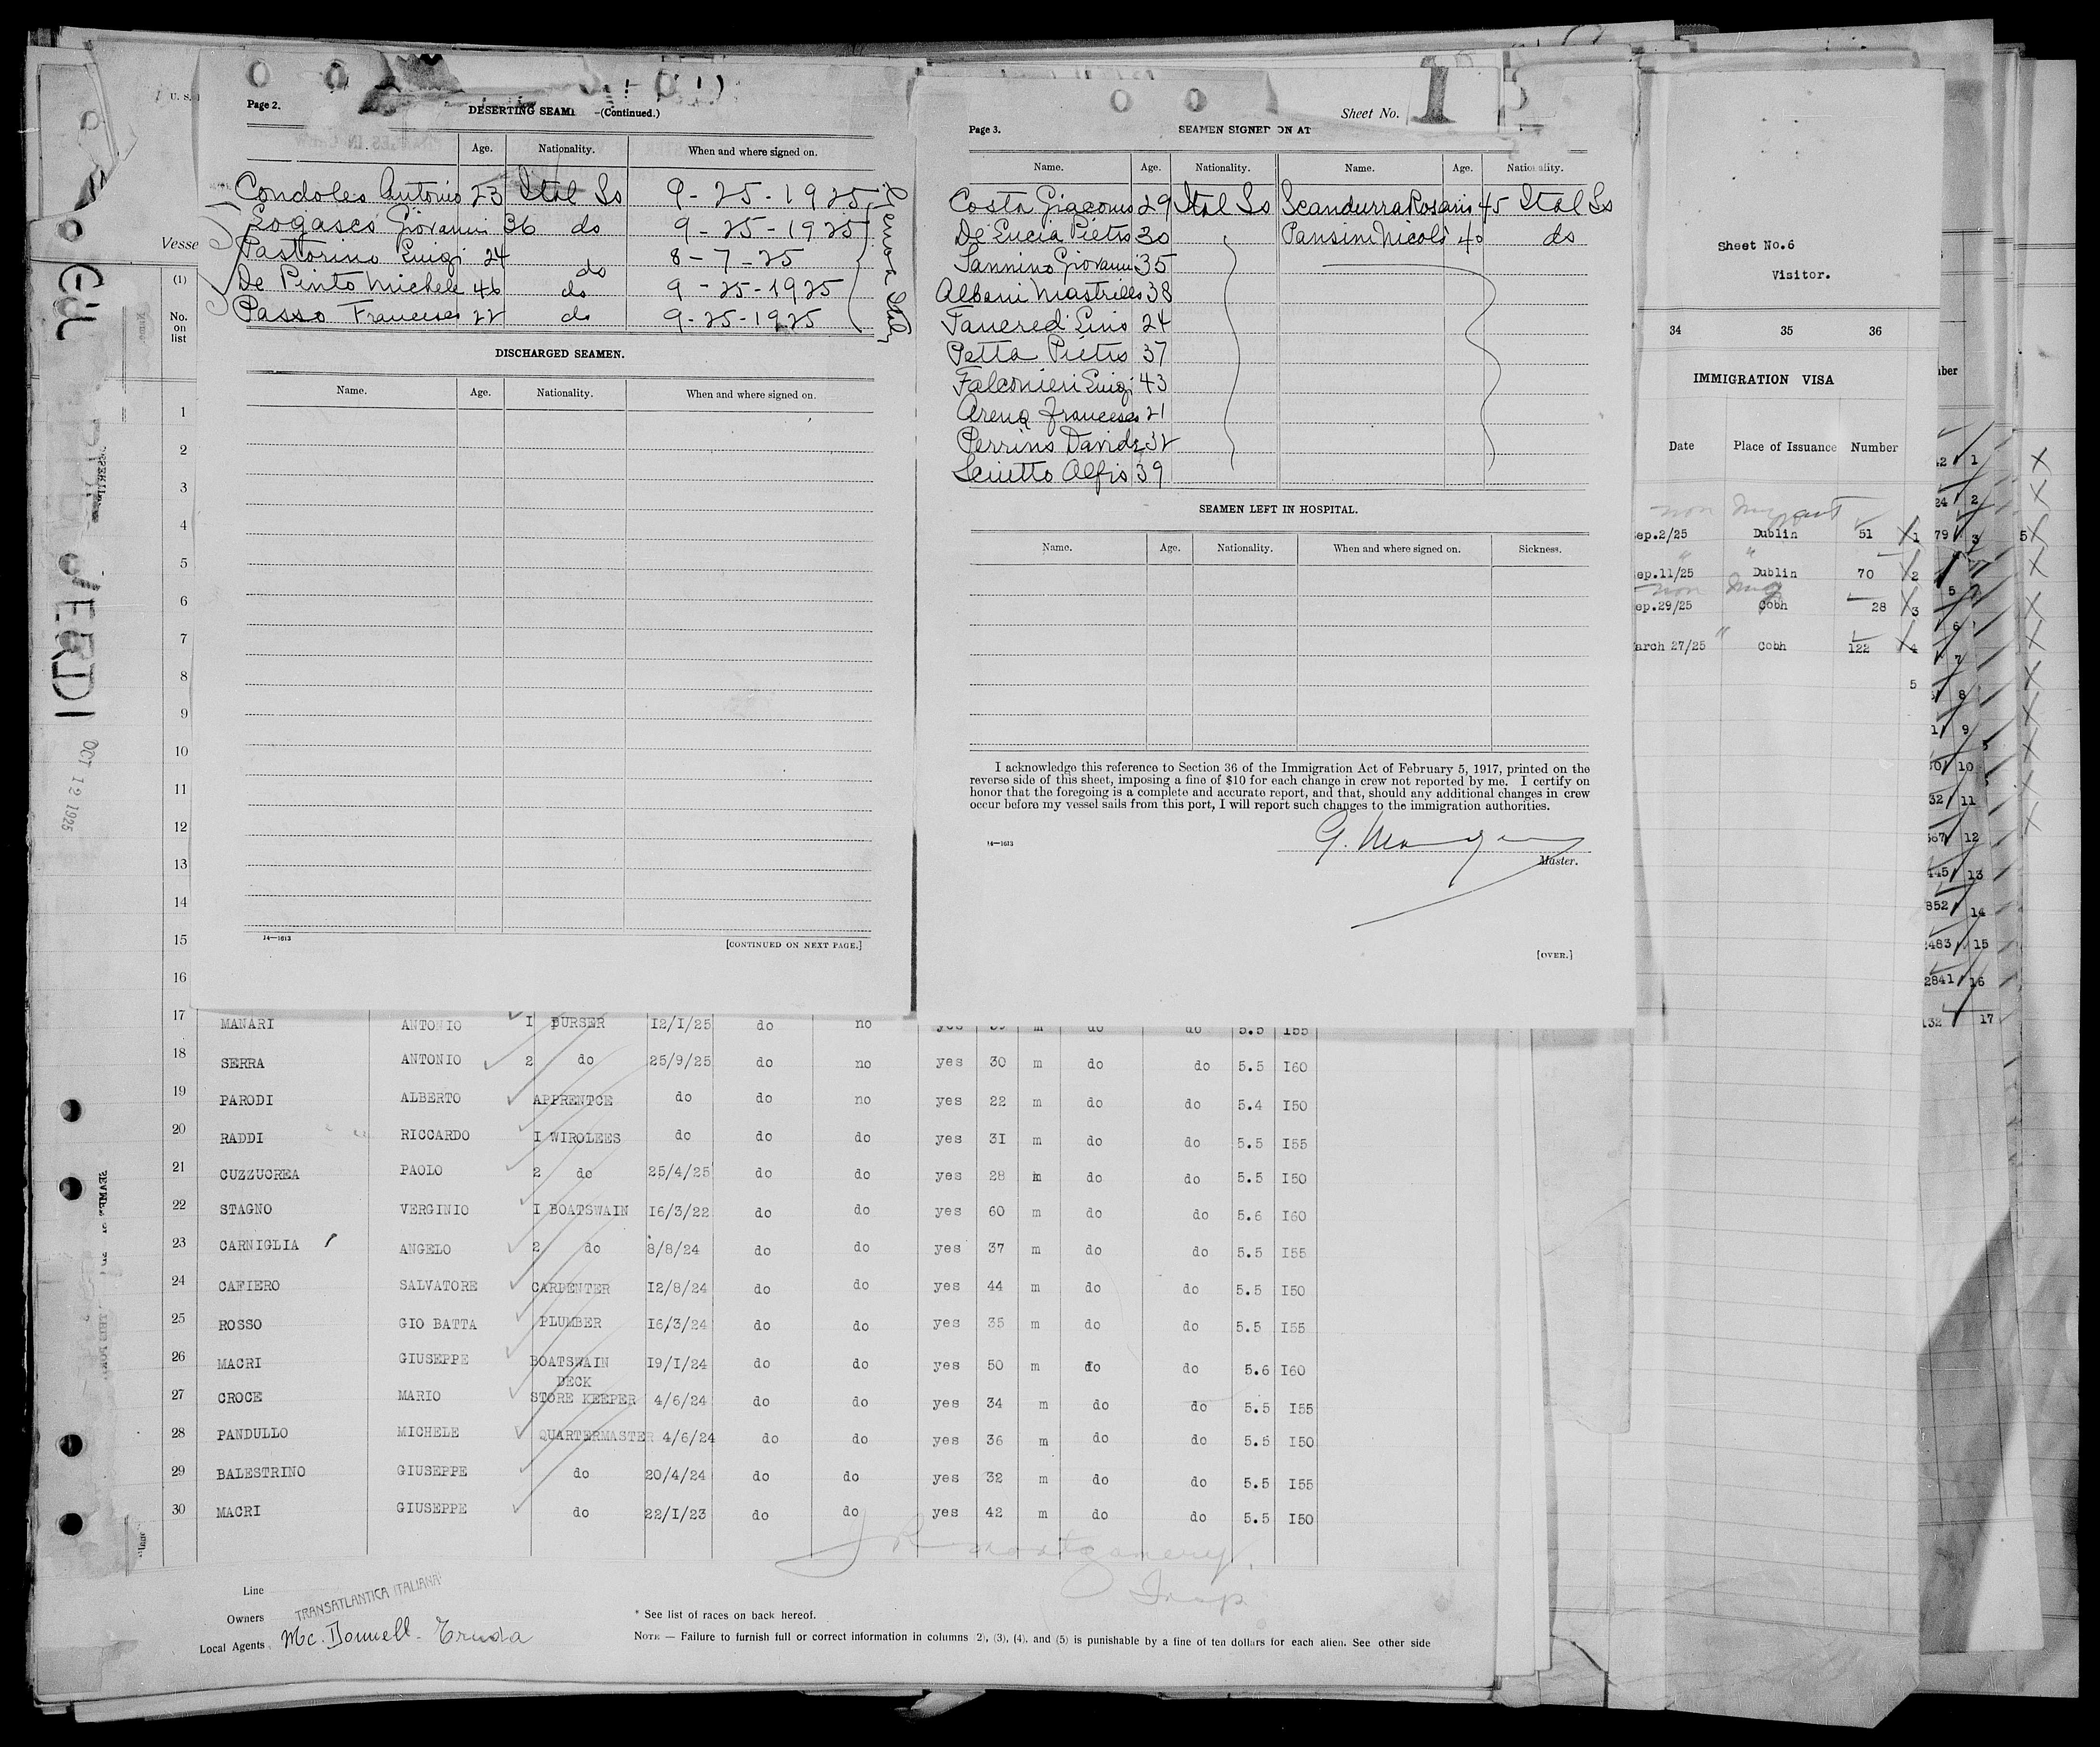 Page 2.
DESERTING SEAM —(Continued.)
Age. Nationality. When and where signed on.
Condoles Antonio 23 Ital So 9-25-1925
Logasco Giovanni 36 do 9-25-1925
Pastorino Luigi 24 do 8-7-25
De Pinto Michele 46 do 9-25-1925
Passo Francesco 22 do 9-25-1925
DISCHARGED SEAMEN.
Name. Age. Nationality. When and where signed on.
14—1613
[CONTINUED ON NEXT PAGE.]
Sheet No. 1
Page 3.
SEAMEN SIGNED ON AT
Name. Age. Nationality. Name. Age. Nationality.
Costa Giacomo 29 Ital So Scandurra Rosario 45 Ital So
De Lucia Pietro 30 Pansini Nicolo 40 do
Sannino Giovanni 35
Albani Mastrillo 38
Tancredi Lino 24
Petta Pietro 37
Falconieri Luigi 43
Arena Francesco 21
Perrino Davide 32
Sciutto Alfio 39
SEAMEN LEFT IN HOSPITAL.
Name. Age. Nationality. When and where signed on. Sickness.
I acknowledge this reference to Section 36 of the Immigration Act of February 5, 1917, printed on the
reverse side of this sheet, imposing a fine of $10 for each change in crew not reported by me. I certify on
honor that the foregoing is a complete and accurate report, and that, should any additional changes in crew
occur before my vessel sails from this port, I will report such changes to the immigration authorities.
14—1613
Master.
[OVER.]
U. S.
Vesse
(1)
No.
on
list
1
2
3
4
5
6
7
8
9
10
11
12
13
14
15
16
17 MANARI ANTONIO I PURSER I2/I/25 do no
18 SERRA ANTONIO 2 do 25/9/25 do no yes 30 m do do 5.5 I60
19 PARODI ALBERTO APPRENTCE do do no yes 22 m do do 5.4 I50
20 RADDI RICCARDO I WIROLEES do do do yes 3I m do do 5.5 I55
21 CUZZUCREA PAOLO 2 do 25/4/25 do do yes 28 m do do 5.5 I50
22 STAGNO VERGINIO I BOATSWAIN I6/3/22 do do yes 60 m do do 5.6 I60
23 CARNIGLIA ANGELO 2 do 8/8/24 do do yes 37 m do do 5.5 I55
24 CAFIERO SALVATORE CARPENTER I2/8/24 do do yes 44 m do do 5.5 I50
25 ROSSO GIO BATTA PLUMBER I6/3/24 do do yes 35 m do do 5.5 I55
26 MACRI GIUSEPPE BOATSWAIN I9/I/24 do do yes 50 m do do 5.6 I60
DECK
27 CROCE MARIO STORE KEEPER 4/6/24 do do yes 34 m do do 5.5 I55
28 PANDULLO MICHELE QUARTERMASTER 4/6/24 do do yes 36 m do do 5.5 I50
29 BALESTRINO GIUSEPPE do 20/4/24 do do yes 32 m do do 5.5 I55
30 MACRI GIUSEPPE do 22/I/23 do do yes 42 m do do 5.5 I50
Montgomery
Insp
Line
Owners TRANSATLANTICA ITALIANA
Local Agents Mc. Donnell - Truda
* See list of races on back hereof.
NOTE — Failure to furnish full or correct information in columns (2), (3), (4), and (5) is punishable by a fine of ten dollars for each alien. See other side
VERDI
OCT 12 1925
Sheet No.6
Visitor.
34 35 36
IMMIGRATION VISA
Date Place of Issuance Number
non Immigrant
ep.2/25 Dublin 51 1
ep.11/25 Dublin 70 2
non Immig
ep.29/25 Cobh 28 3
arch 27/25 Cobh 122 4
5